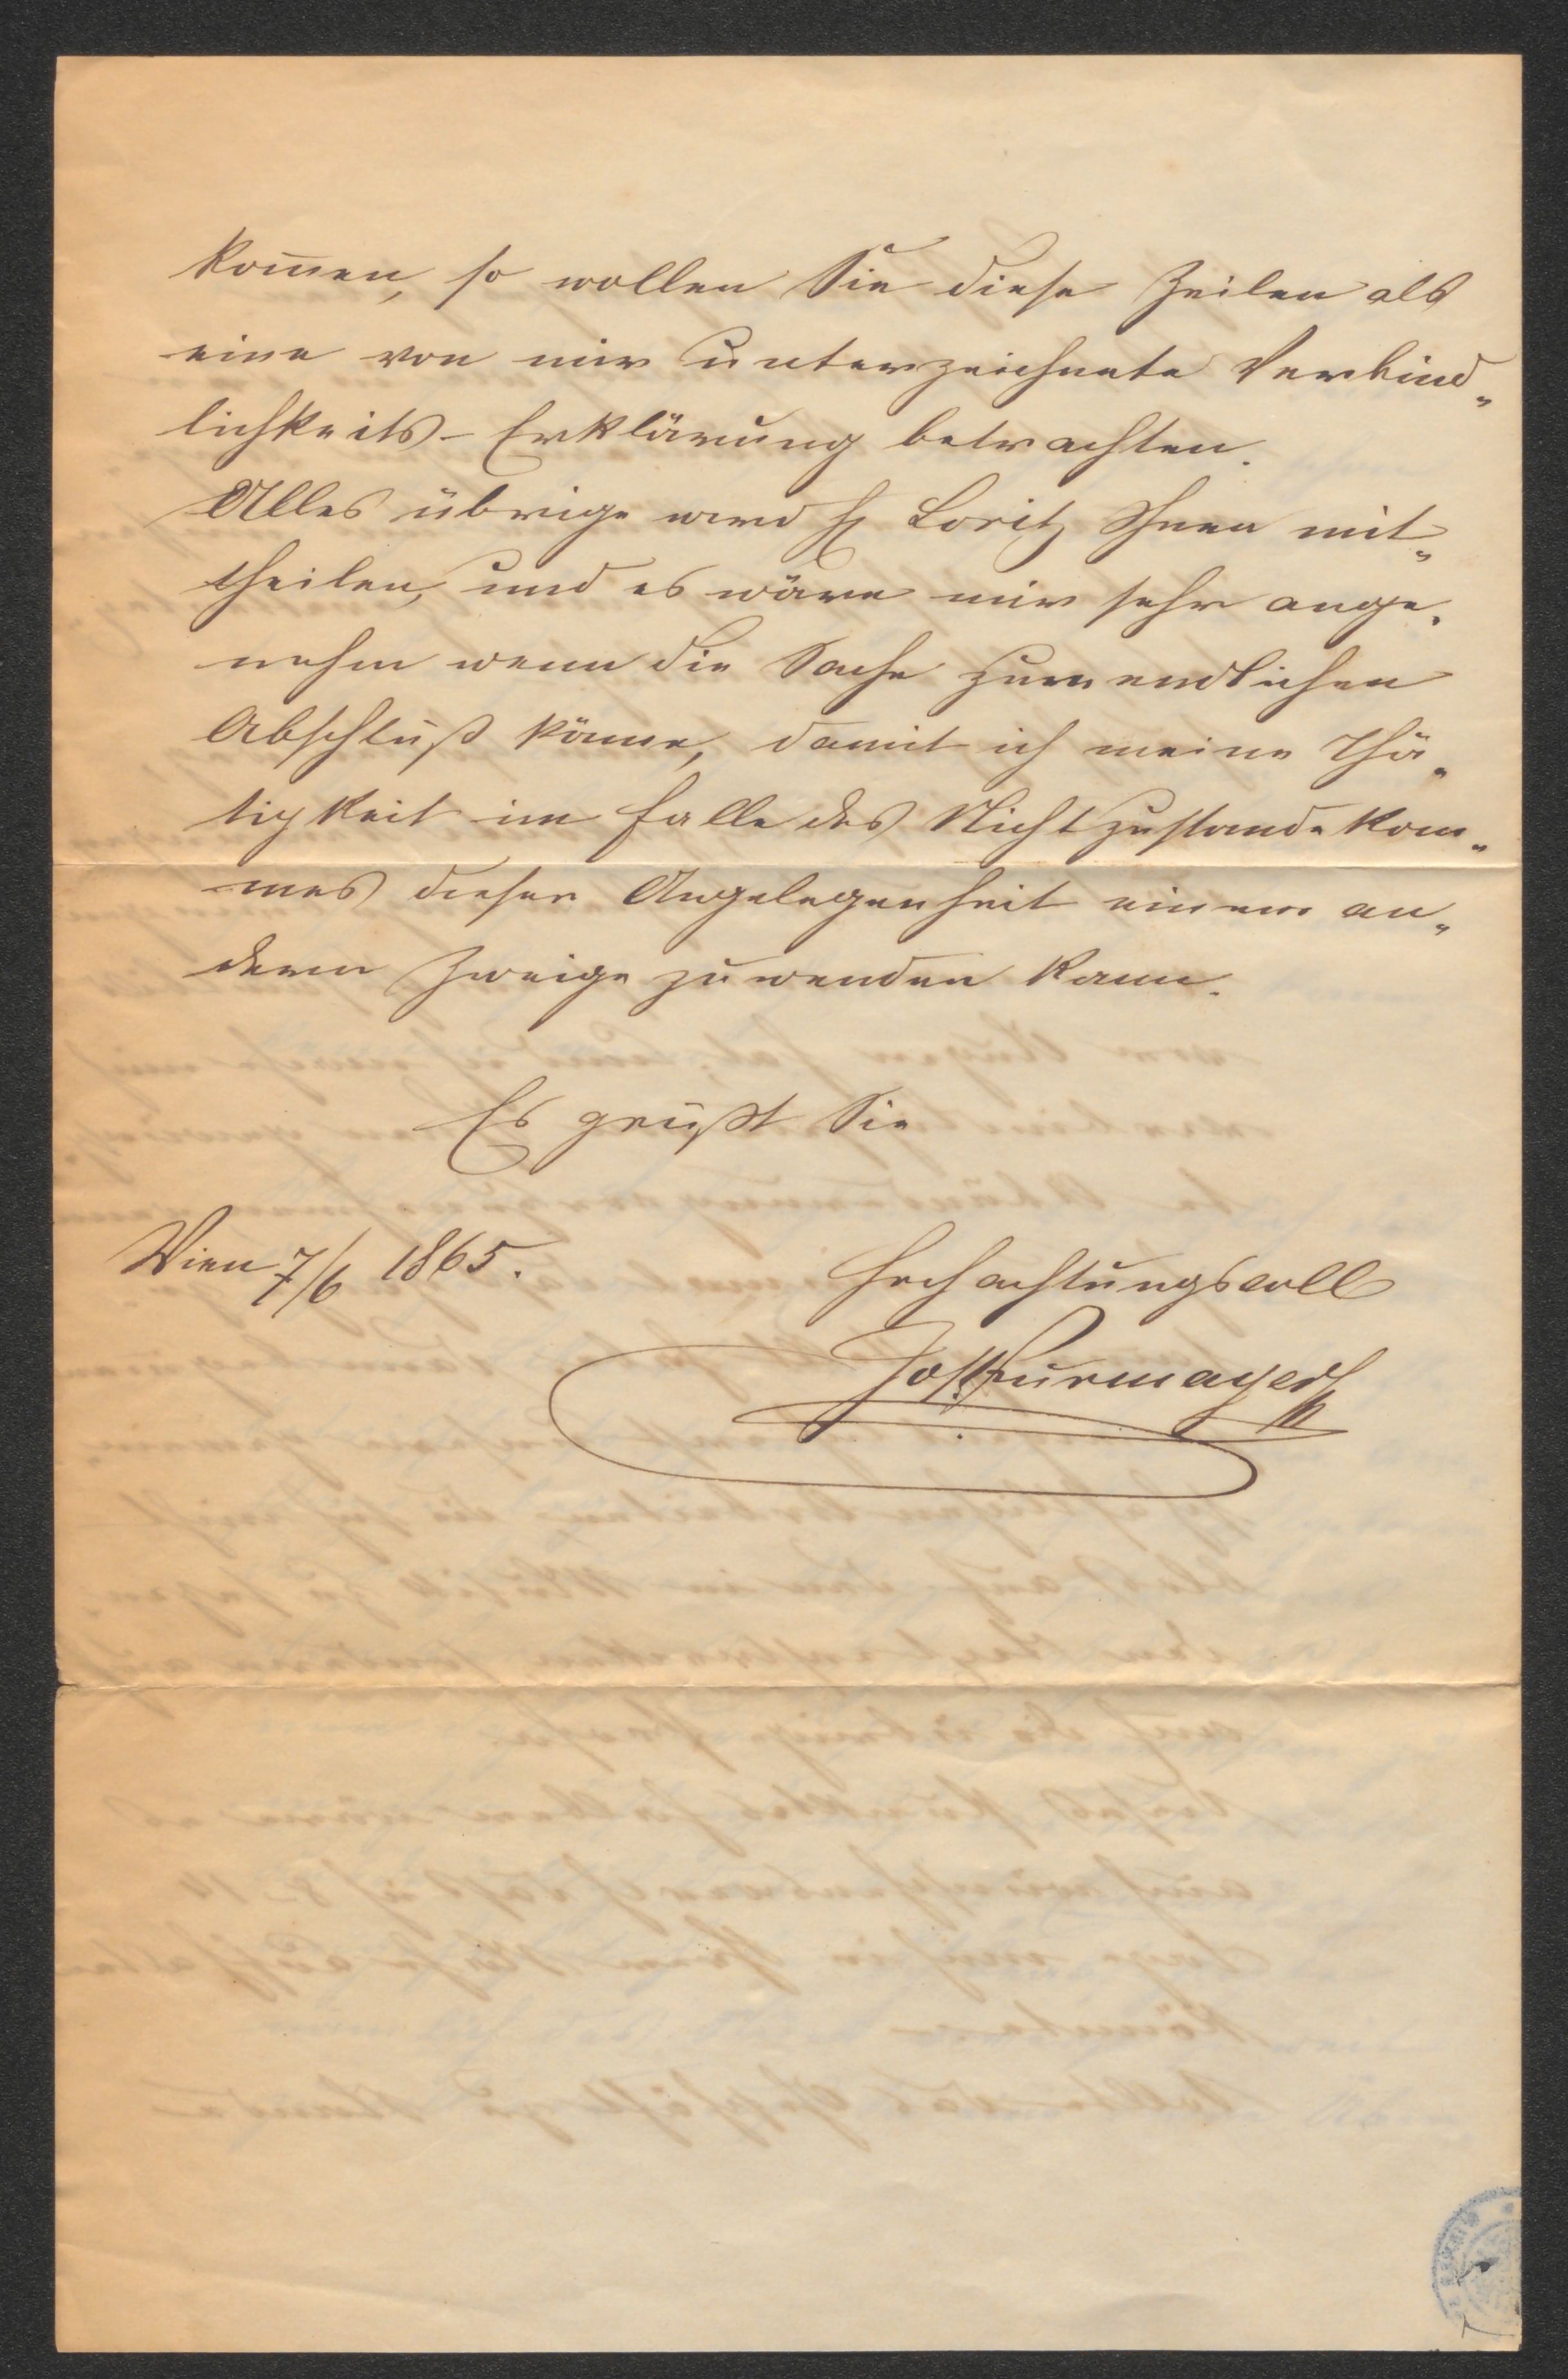 kom̅en, so wollen Sie diese Zeilen als
eine von mir unterzeichnete Verbind„
lichkeits-Erklärung betrachten.
Alles übrige wird H Loritz Ihnen mit„
theilen, und es wäre mir sehr ange„
nehm wenn die Sache zum endlichen
Abschluß käme, damit ich meine Thä„
tigkeit im Falle des Nichtzustandekom„
mes dieser Angelegenheit einem an„
dern Zweige zuwenden kann.
Es grüßt Sie
Wien 7/6 1865.
Hochachtungsvoll
Jos.